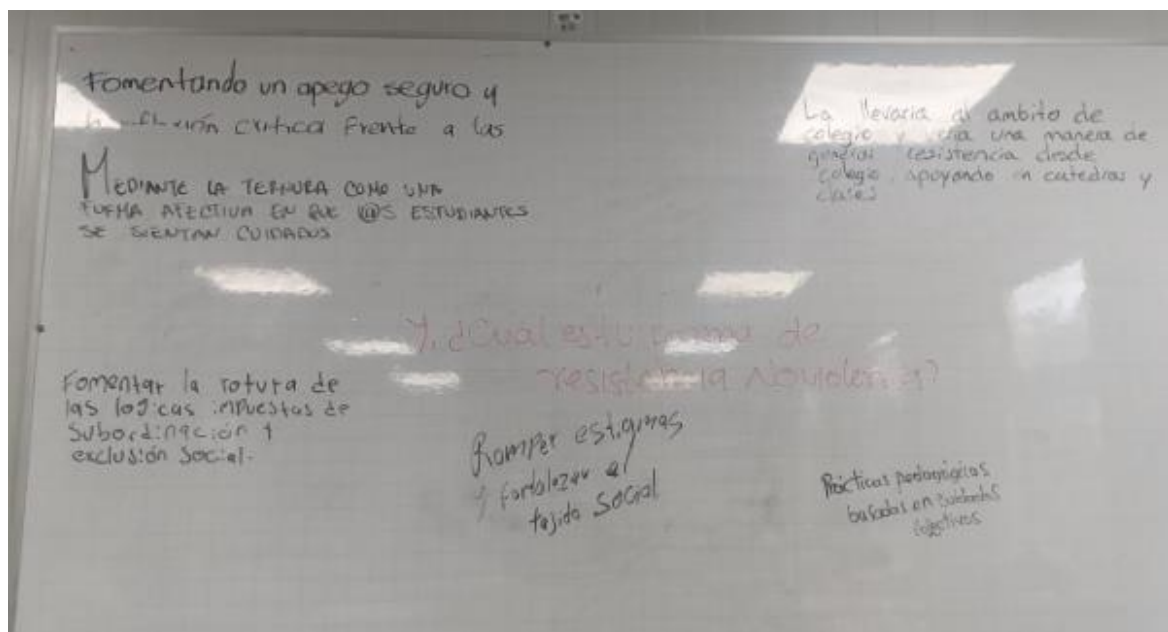 Fomentando un apego seguro y
crítica frente a las
MEDIANTE LA TERNURA COMO UNA
FORMA AFECTIVA EN QUE L@S ESTUDIANTES
SE SIENTAN CUIDADOS
La llevaria al ambito de
colegio y una manera de
generar resistencia desde
colegio, apoyando en catedras y
clases
Y, ¿Cuál es tu forma de
resistencia Noviolenta?
Fomentar la rotura de
las logicas impuestas de
subordinación y
exclusión social.
Romper estigmas
y fortalezer el
tejido social
Prácticas pedagógicas
basadas en cuidados